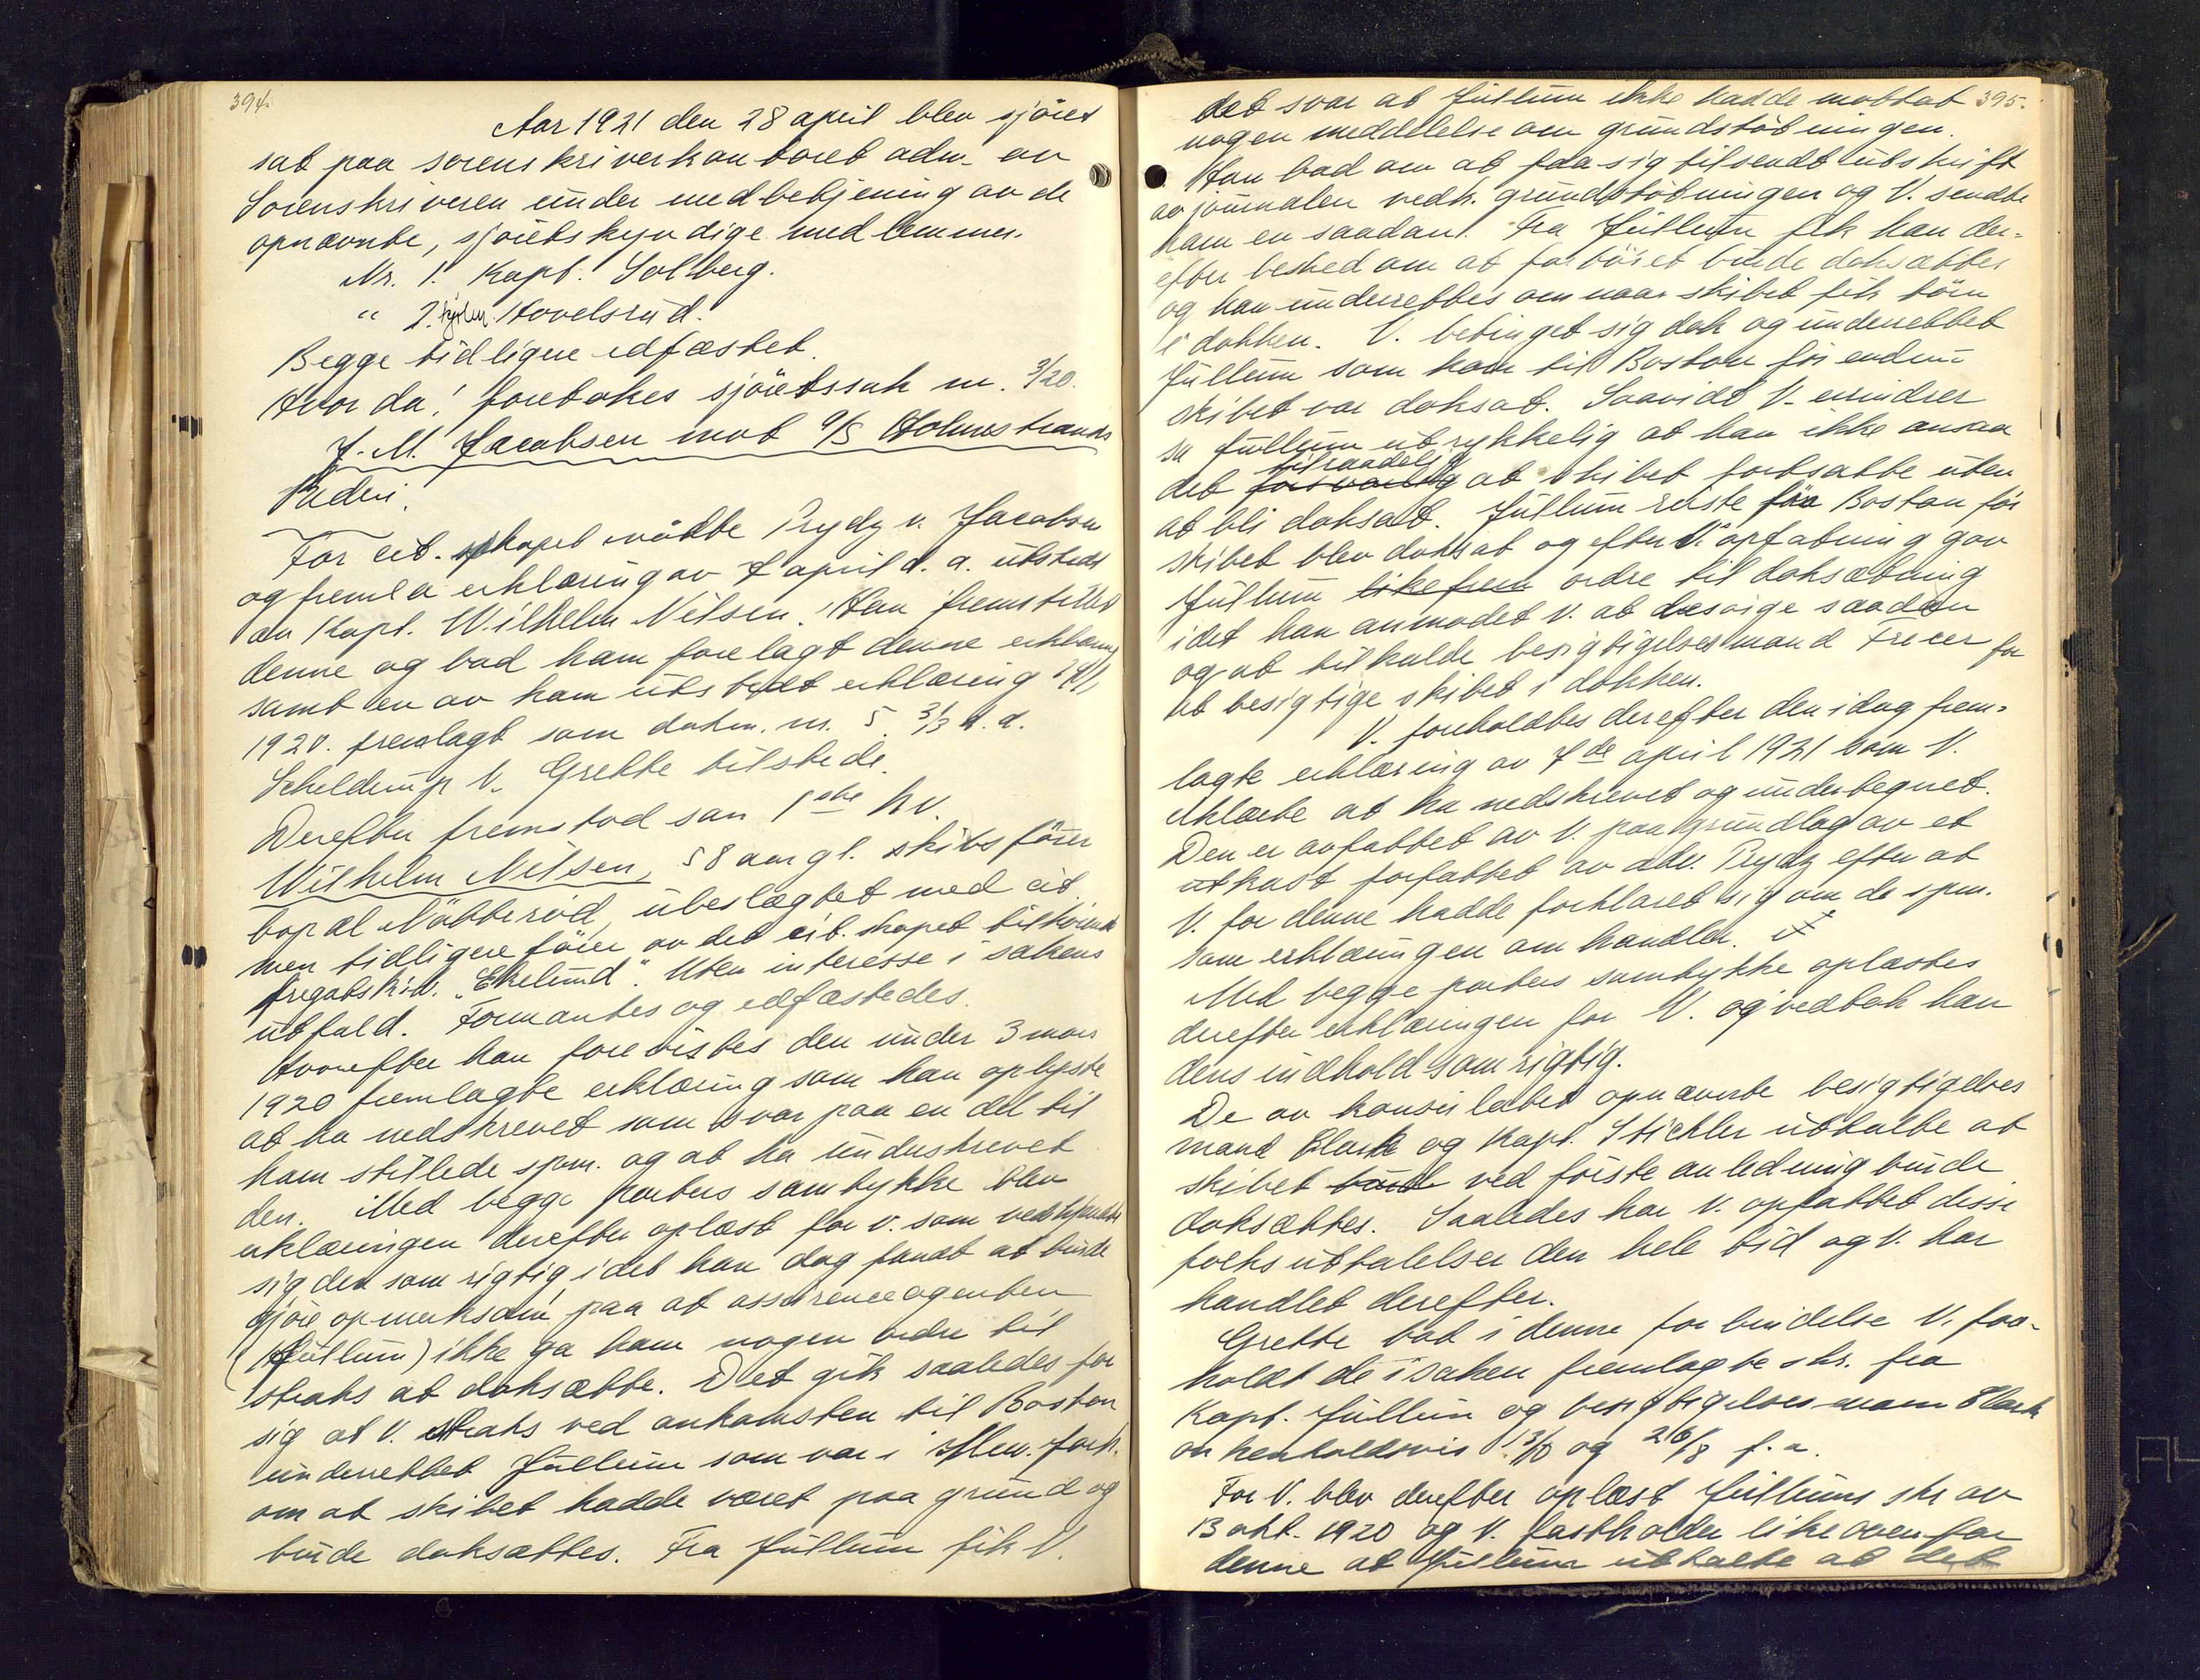 394.
Aar 1921 den 28 april blev sjöret
sat paa sorenskriverkontoret adm. av
Sorenskriveren under medbetjening av de
opnævnte, sjöretskyndige medlemmer.
Nr. 1. Kapt. Solberg.
" 2. Hovelsrud.
Begge tidligere edfæstet.
Hvor da! foretokes sjöretssak nr. 3/20.
J. M. Jacobsen mot a/s Holmestrands
Rederi.
For cit. skapet mötte Prydz v. Jacobsen
og fremla erklæring av 7 april d. a. utstedt
av Kapt. Wilhelm Nilsen. Han fremstillet
denne og bad ham forelagt denne erklæring
samt en av ham utstedt erklæring
1920. fremlagt som dokm. nr. 5. 3/3 d. a.
Scheldrup v. Grette tilstede.
Derefter fremstod som 1ste hv.
Wilhelm Nilsen, 58 aar gl. skibsförer
bopæl Nötteröd, ubeslægtet med cit.
men tidligere förer av det cit. skapet tilhörende
fregatskib. "Ekelund". Uten interesse i sakens
utfald. Formantes og edfæstedes.
Hvorefter han forevistes den under 3 mars
1920 fremlagte erklæring som han oplyste
at ha nedskrevet som svar paa en del til
ham stillede spm. og at ha underskrevet
den. Med begge parters samtykke blev
erklæringen derefter oplæst for v. som vedkjendte
sig den som rigtig idet han dog fandt at burde
gjöre opmerksom paa at assuranceagenten
(Jullum) ikke ga ham nogen ordre til
straks at doksætte. Det gik saaledes for
sig at V. straks ved ankomsten til Boston
underrettet Jullum som var i New. York.
om at skibet hadde været paa grund og
burde doksættes. Fra Jullum fik V.
395.
det svar at Jullum ikke hadde mottat
nogen meddelelse om grundstötningen.
Han bad om at faa sig tilsendt utskrift
av journalen vedk. grundstötningen og V. sendte
ham en saadan. Fra Jullum fik han der-
efter besked om at fartöiet burde doksættes
og han underrettes om naar skibet fik törn
i dokken. V. betinget sig dok og underrettet
Jullum som kom til Boston för endnu
skibet var doksat. Saavidt V. erindrer
sa Jullum utrykkelig at han ikke ansaa
tilraadelig
det forsvarlig at skibet fortsatte uten
at bli doksat. Jullum reiste fra Boston för
skibet blev doksat og efter V.s opfatning gav
Jullum likefrem ordre til doksætning
idet han anmodet V. at besörge saadan
og at tilkalde besigtigelsesmand Frecer for
at besigtige skibet i dokken.
V. foreholdtes derefter den idag frem-
lagte erklæring av 7de april 1921 som V.
erklærte at ha nedskrevet og undertegnet.
Den er avfattet av V. paa grundlag av et
utkast forfattet av adv. Prydz efter at
V. for denne hadde forklaret sig om de spm.
som erklæringen om handler.
Med begge parters samtykke oplæstes
derefter erklæringen for V. og vedtok han
dens indhold som rigtig.
De av konsulatet opnævnte besigtigelses
mænd Clark og Kapt. Stichler uttalte at
skibet burde ved förste anledning burde
doksættes. Saaledes har V. opfattet disse
folks uttalelser den hele tid og V. har
handlet derefter.
Grette bad i denne forbindelse V. fore-
holdt de i saken fremlagte skr. fra
Kapt. Jullum og besigtigelsesmann Clark
av henholdsvis 13/10 og 26/8 f. a.
For V. blev derefter oplæst Jullums skr av
13 okt. 1920 og V. fastholder likeoverfor
denne at Jullum uttalte at det